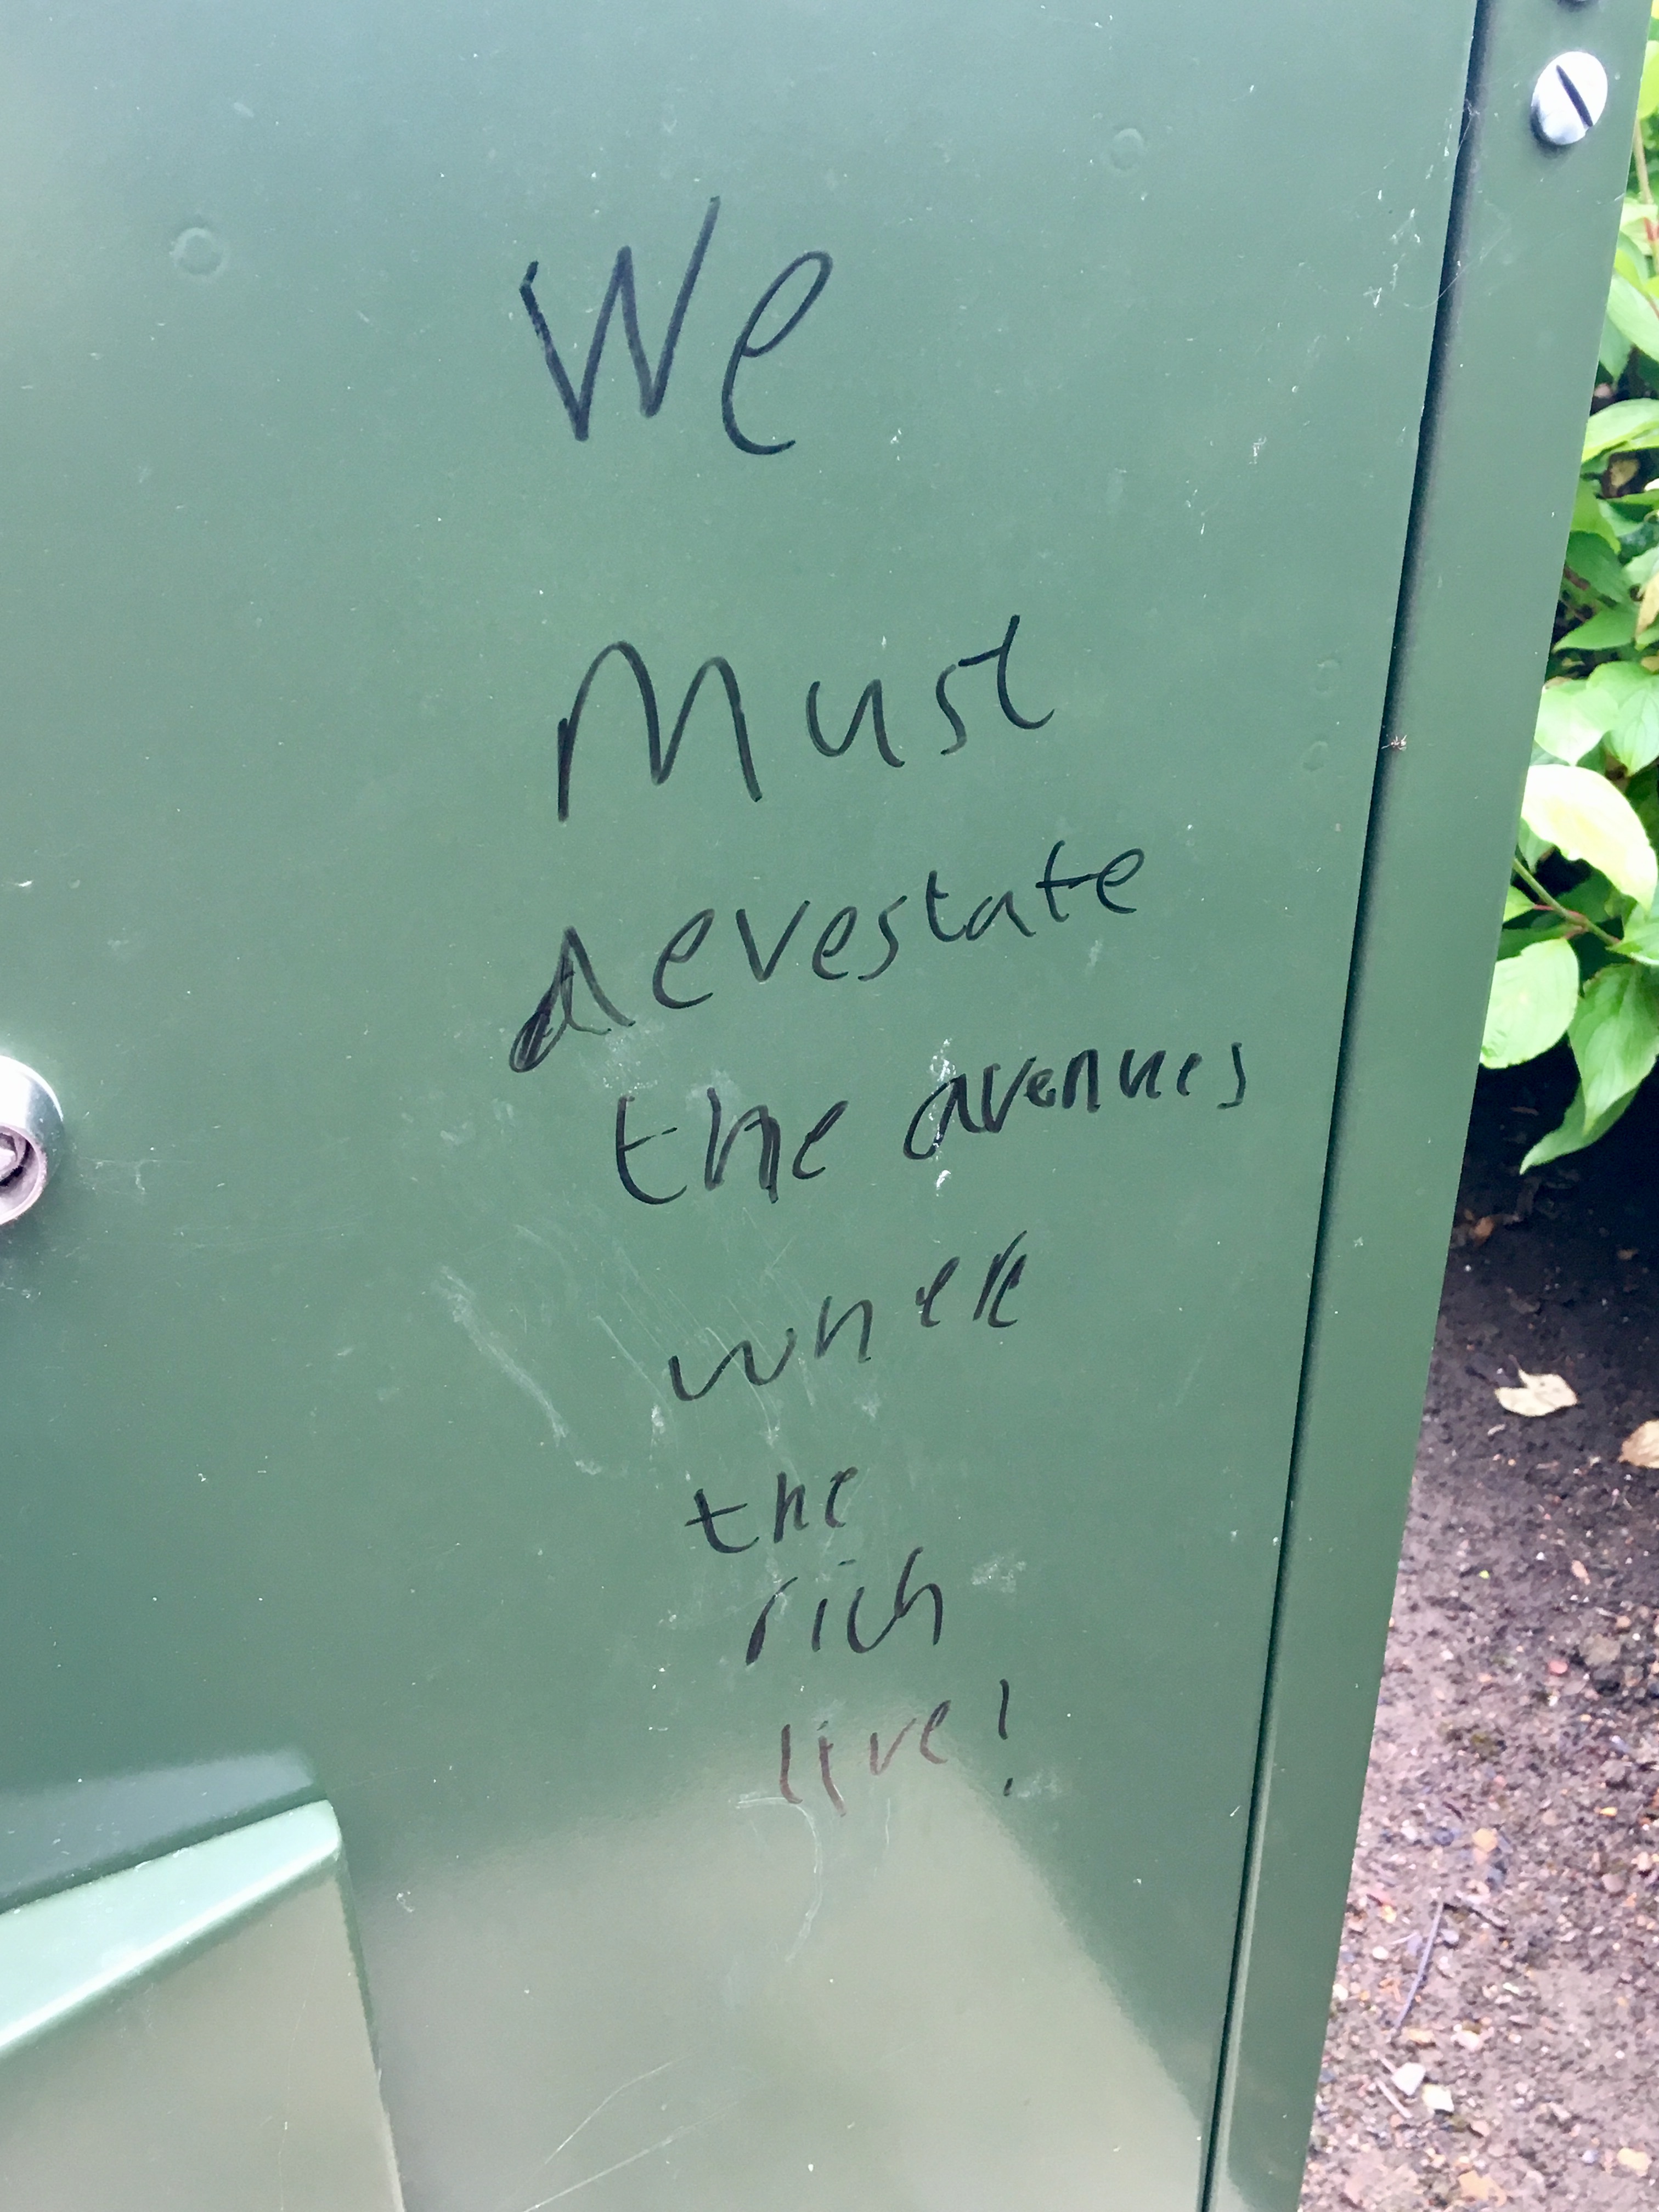 We
Must
devestate
the avenues
where
the
rich
live!